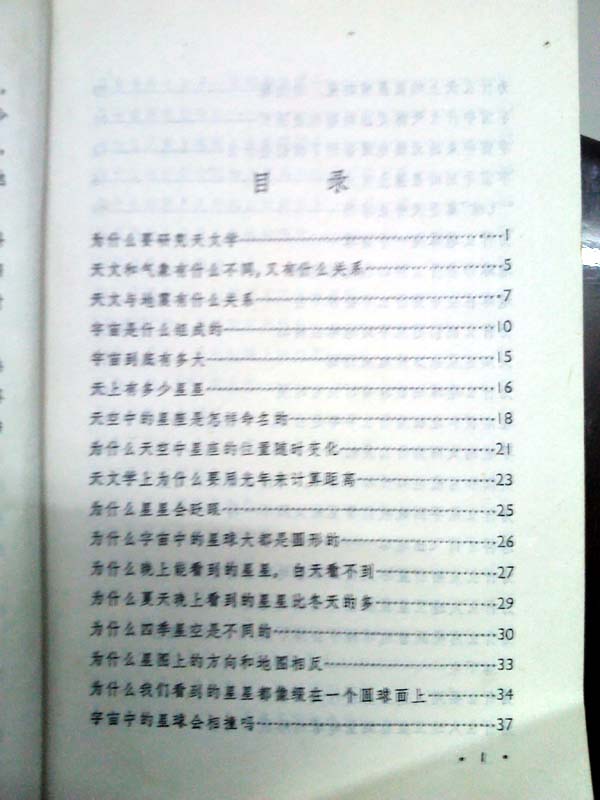 目 录
为什么要研究天文学……1
天文和气象有什么不同,又有什么关系……5
天文与地震有什么关系……7
宇宙是什么组成的……10
宇宙到底有多大……15
天上有多少星星……16
天空中的星座是怎样命名的……18
为什么天空中星座的位置随时变化……21
天文学上为什么要用光年来计算距离……23
为什么星星会眨眼……25
为什么宇宙中的星球大都是圆形的……26
为什么晚上能看到的星星,白天看不到……27
为什么夏天晚上看到的星星比冬天的多……29
为什么四季星空是不同的……30
为什么星图上的方向和地图相反……33
为什么我们看到的星星都像缀在一个圆球面上……34
宇宙中的星球会相撞吗……37
· 1 ·